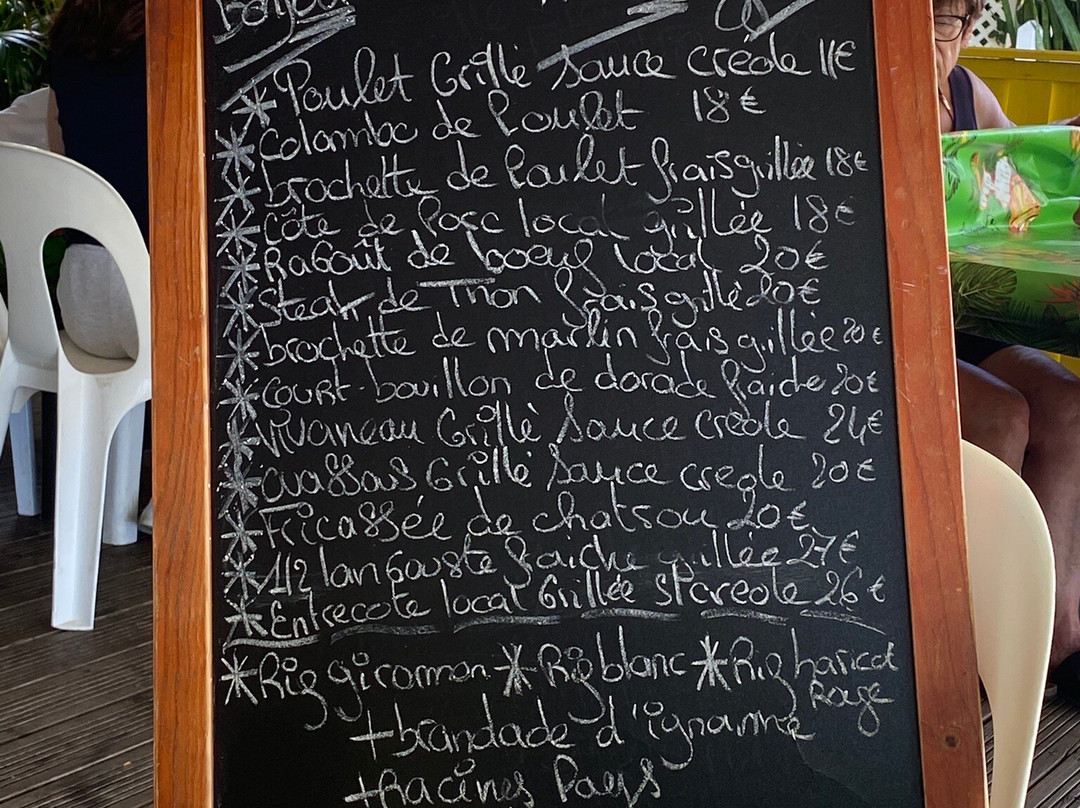 Bonjour
* Poulet Grillé Sauce créole 11€
* Colombo de Poulet 18€
* brochette de Poulet frais grillée 18€
* Côte de Porc local grillée 18€
* Ragoût de boeuf local 20€
* Steak de Thon frais grillé 20€
* brochette de marlin frais grillée 20€
* court-bouillon de dorade fraiche 20€
* Vivaneau Grillé Sauce creole 24€
* Ouassous Grillé Sauce creole 20€
* Fricassée de chatrou 20€
* 1/2 langouste fraiche grillée 27€
* Entrecote local Grillée s/creole 26€
* Riz giromon * Riz blanc * Riz haricot
Rouge
+ brandade d'igname
+ Racines Pays